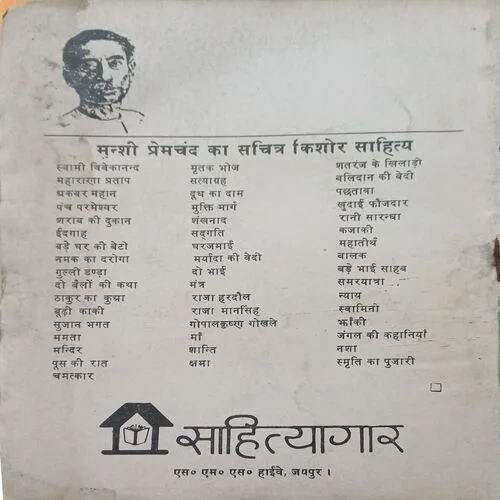 मुन्शी प्रेमचंद का सचित्र किशोर साहित्य
स्वामी विवेकानन्द
महाराणा प्रताप
अकबर महान
पंच परमेश्वर
शराब की दुकान
ईदगाह
बड़े घर की बेटी
नमक का दरोगा
गुल्ली डण्डा
दो बैलों की कथा
ठाकुर का कुआ
बूढ़ी काकी
सुजान भगत
ममता
मन्दिर
पूस की रात
चमत्कार
मृतक भोज
सत्याग्रह
दूध का दाम
मुक्ति मार्ग
शंखनाद
सद्गति
घरजमाई
मर्यादा की वेदी
दो भाई
मंत्र
राजा हरदौल
राजा मानसिंह
गोपालकृष्ण गोखले
माँ
शान्ति
क्षमा
शतरंज के खिलाड़ी
बलिदान की बेदी
पछतावा
खुदाई फौजदार
रानी सारन्धा
कजाकी
महातीर्थ
बालक
बड़े भाई साहब
समरयात्रा
न्याय
स्वामिनी
झाँकी
जंगल की कहानियाँ
नशा
स्मृति का पुजारी
साहित्यागार
एस० एम० एस० हाईवे, जयपुर ।